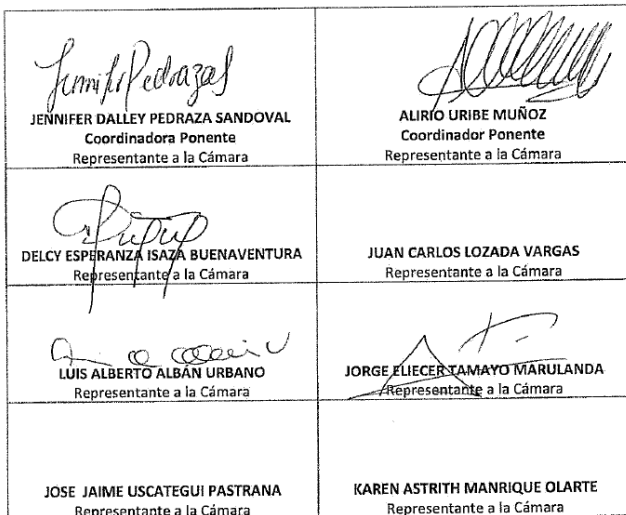 Jennifer Pedraza S
JENNIFER DALLEY PEDRAZA SANDOVAL
Coordinadora Ponente
Representante a la Cámara
ALIRIO URIBE MUÑOZ
Coordinador Ponente
Representante a la Cámara
DELCY ESPERANZA ISAZA BUENAVENTURA
Representante a la Cámara
JUAN CARLOS LOZADA VARGAS
Representante a la Cámara
LUIS ALBERTO ALBÁN URBANO
Representante a la Cámara
JORGE ELIECER TAMAYO MARULANDA
Representante a la Cámara
JOSE JAIME USCATEGUI PASTRANA
Representante a la Cámara
KAREN ASTRITH MANRIQUE OLARTE
Representante a la Cámara